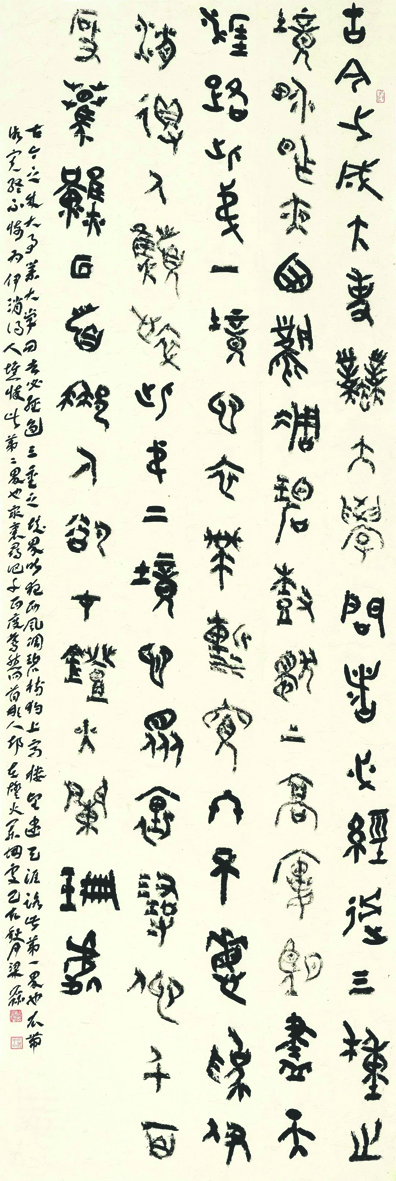 古今之成大事業大學問者必經過三種之
境界昨夜西風凋碧樹獨上高樓望盡天
涯路此弟一境也衣帶漸寬終不悔為伊
消得人憔悴此弟二境也眾裏尋他千百
度驀然回首那人卻在燈火闌珊處
古今之成大事業大學問者必經過三重之境界昨夜西風凋碧樹獨上高樓望盡天涯路此第一界也衣帶
漸寬終不悔為伊消得人憔悴此第二界也眾裏尋他千百度驀然回首那人却在燈火闌珊處己丑秋月梁